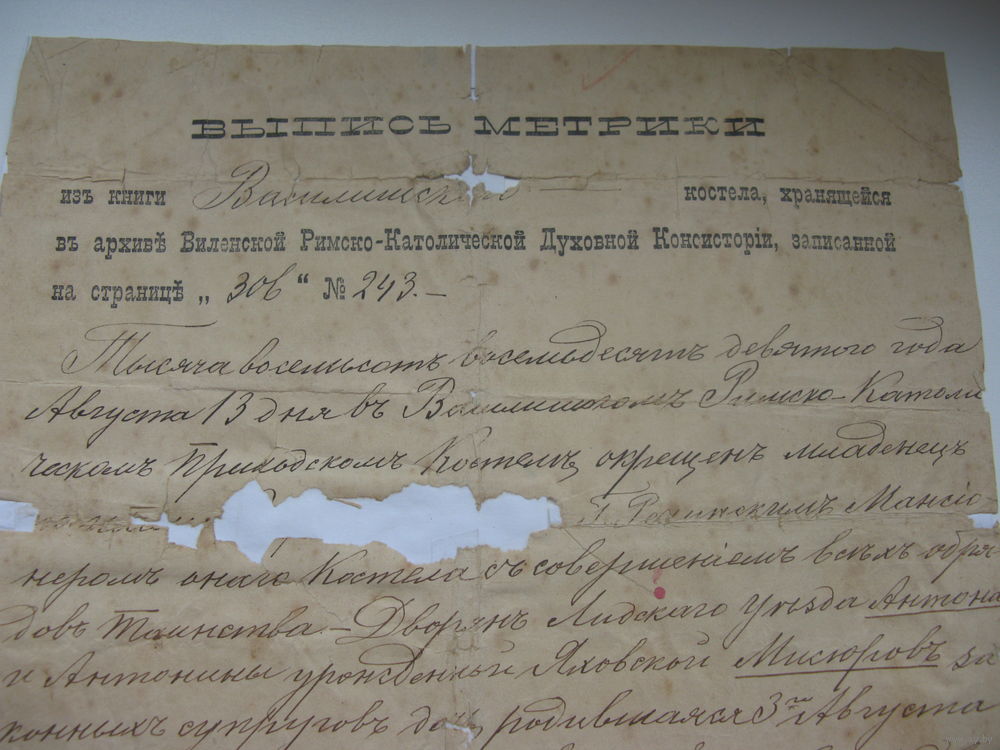 ВЫПИСЬ МЕТРИКИ
изъ книги Василишскаго костела, хранящейся
въ архивѣ Виленской Римско-Католической Духовной Консисторіи, записанной
на страницѣ „ 306 “ № 243.–
Тысяча восемьсотъ восемьдесятъ девятого года
Августа 13 дня въ Василишкомъ Римско-Католи
ческомъ Приходскомъ Костелѣ, окрещенъ младенецъ
Мансіо-
неромъ онаго Костела съ совершеніемъ всѣхъ обря
довъ Таинства.– Дворянъ Лидскаго Уѣзда Антона
и Антонины урожденный Яховской Мисюровъ за
конныхъ супруговъ дочь, родившаяся 3го Августа
www.ay.by